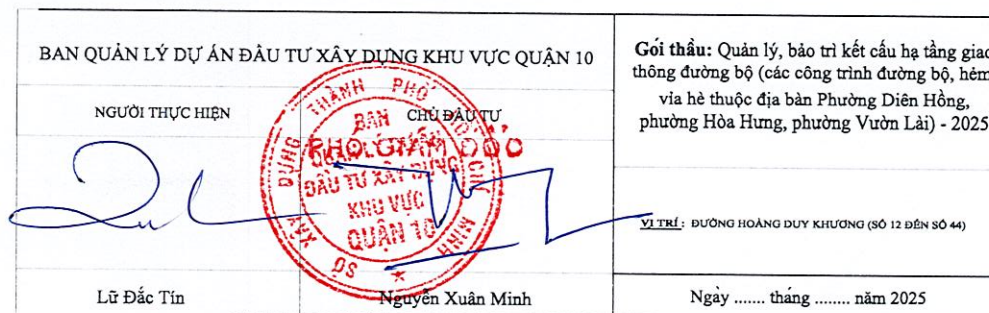 BAN QUẢN LÝ DỰ ÁN ĐẦU TƯ XÂY DỰNG KHU VỰC QUẬN 10
NGƯỜI THỰC HIỆN
CHỦ ĐẦU TƯ
PHÓ GIÁM ĐỐC
SỞ XÂY DỰNG THÀNH PHỐ HỒ CHÍ MINH
BAN
QUẢN LÝ DỰ ÁN
ĐẦU TƯ XÂY DỰNG
KHU VỰC
QUẬN 10
Lữ Đắc Tín
Nguyễn Xuân Minh
Gói thầu: Quản lý, bảo trì kết cấu hạ tầng giao
thông đường bộ (các công trình đường bộ, hẻm
vỉa hè thuộc địa bàn Phường Diên Hồng,
phường Hòa Hưng, phường Vườn Lài) - 2025
VỊ TRÍ : ĐƯỜNG HOÀNG DUY KHƯƠNG (SỐ 12 ĐẾN SỐ 44)
Ngày ....... tháng ........ năm 2025